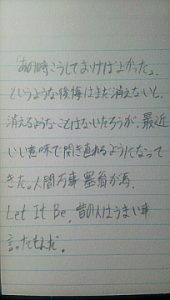 「あの時こうしておけばよかった」
というような後悔はまだ消えないし、
消えるようなことはないだろうが、最近
いい意味で開き直れるようになって
きた。人間万事塞翁が馬、
Let It Be, 昔の人はうまい事
言ったもんだ。